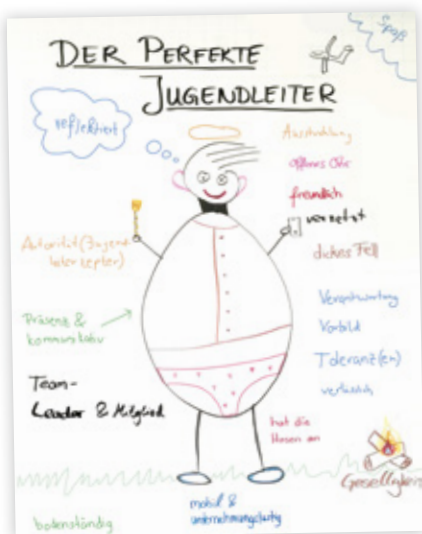 DER PERFEKTE
JUGENDLEITER
Spaß
reflektiert
Ausstrahlung
offenes Ohr
freundlich
vernetzt
dickes Fell
Autorität (Jugend
leiterzepter)
Präsenz &
kommunikativ
Verantwortung
Vorbild
Toleranz(en)
verlässlich
Team-
Leader & Mitglied
hat die
Hosen an
Geselligkeit
mobil &
unternehmungslustig
bodenständig